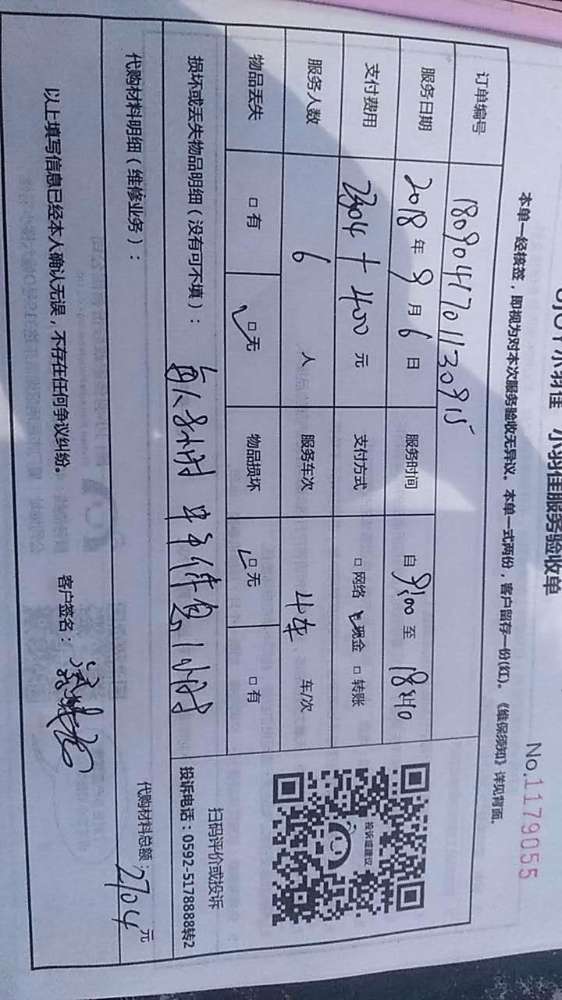 小羽佳 小羽佳服务验收单
No.1179055
本单一经核签，即视为对本次服务验收无异议。本单一式两份，客户留存一份(红)。《维保须知》详见背面。
订单编号 1809041701130915
服务日期 2018年9月6日 服务时间 自9:00至18:40
支付费用 2304+400元 支付方式 □网络 ☑现金 □转账
服务人数 6人 服务车次 4车 车/次
物品丢失 □有 ☑无 物品损坏 ☑无 □有
投诉或建议
扫码评价或投诉
投诉电话：0592-5178888转2
损坏或丢失物品明细（没有可不填）： 每人8小时 中午休息1小时
代购材料明细（维修业务）： 代购材料总额：2704元
以上填写信息已经本人确认无误，不存在任何争议纠纷。 客户签名：